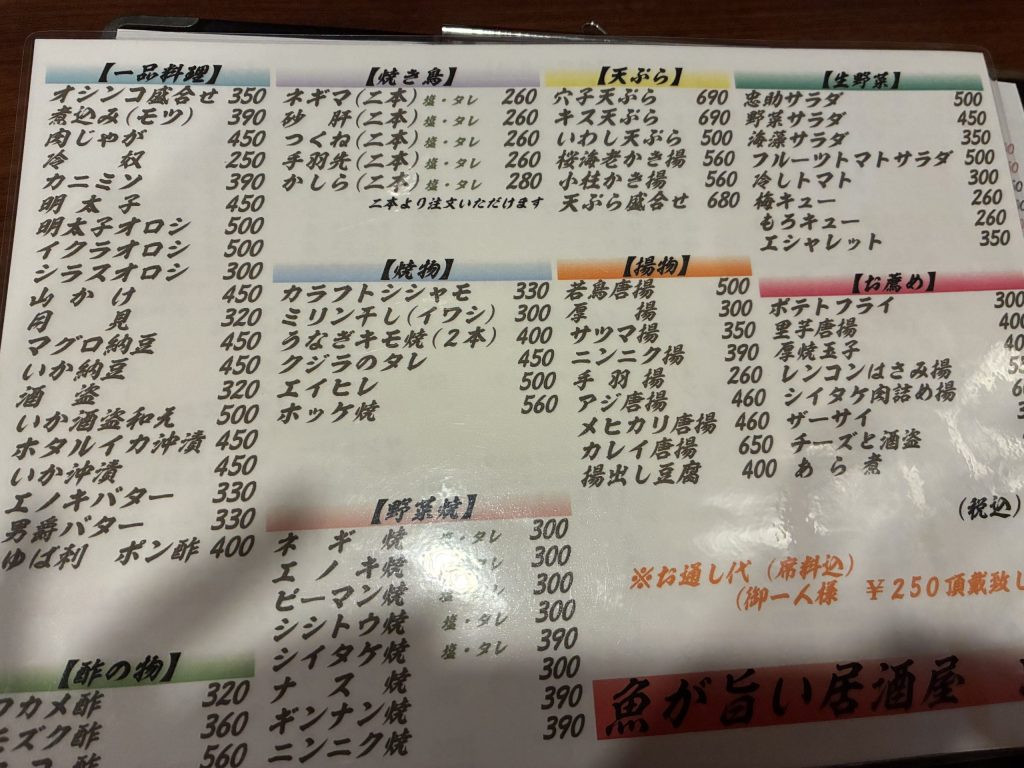 【一品料理】
オシンコ盛合せ 350
煮込み(モツ) 390
肉じゃが 450
冷 奴 250
カニミソ 390
明 太 子 450
明太子オロシ 500
イクラオロシ 500
シラスオロシ 300
山 か け 450
月 見 320
マグロ納豆 450
いか納豆 450
酒 盗 320
いか酒盗和え 500
ホタルイカ沖漬 450
いか沖漬 450
エノキバター 330
男爵バター 330
ゆば刺 ポン酢 400
【酢の物】
ワカメ酢 320
モズク酢 360
コ酢 560
【焼き鳥】
ネギマ(二本) 塩・タレ 260
砂 肝(二本) 塩・タレ 260
つくね(二本) 塩・タレ 260
手羽先(二本) 塩・タレ 260
かしら(二本) 塩・タレ 280
二本より注文いただけます
【焼物】
カラフトシシャモ 330
ミリン干し(イワシ) 300
うなぎキモ焼(2本) 400
クジラのタレ 450
エイヒレ 500
ホッケ焼 560
【野菜焼】
ネ ギ 焼 塩・タレ 300
エ ノ キ焼 塩・タレ 300
ピーマン焼 塩・タレ 300
シシトウ焼 塩・タレ 300
シイタケ焼 塩・タレ 390
ナ ス 焼 300
ギンナン焼 390
ニンニク焼 390
【天ぷら】
穴子天ぷら 690
キス天ぷら 690
いわし天ぷら 500
桜海老かき揚 560
小柱かき揚 560
天ぷら盛合せ 680
【揚物】
若鳥唐揚 500
厚 揚 300
サツマ揚 350
ニンニク揚 390
手 羽 揚 260
アジ唐揚 460
メヒカリ唐揚 460
カレイ唐揚 650
揚出し豆腐 400
【生野菜】
忠助サラダ 500
野菜サラダ 450
海藻サラダ 350
フルーツトマトサラダ 500
冷しトマト 300
梅キュー 260
もろキュー 260
エシャレット 350
【お薦め】
ポテトフライ 300
里芋唐揚 400
厚焼玉子
レンコンはさみ揚
シイタケ肉詰め揚
ザーサイ
チーズと酒盗
あ ら 煮
(税込)
※お通し代(席料込)
(御一人様 ¥250頂戴致し
魚が旨い居酒屋